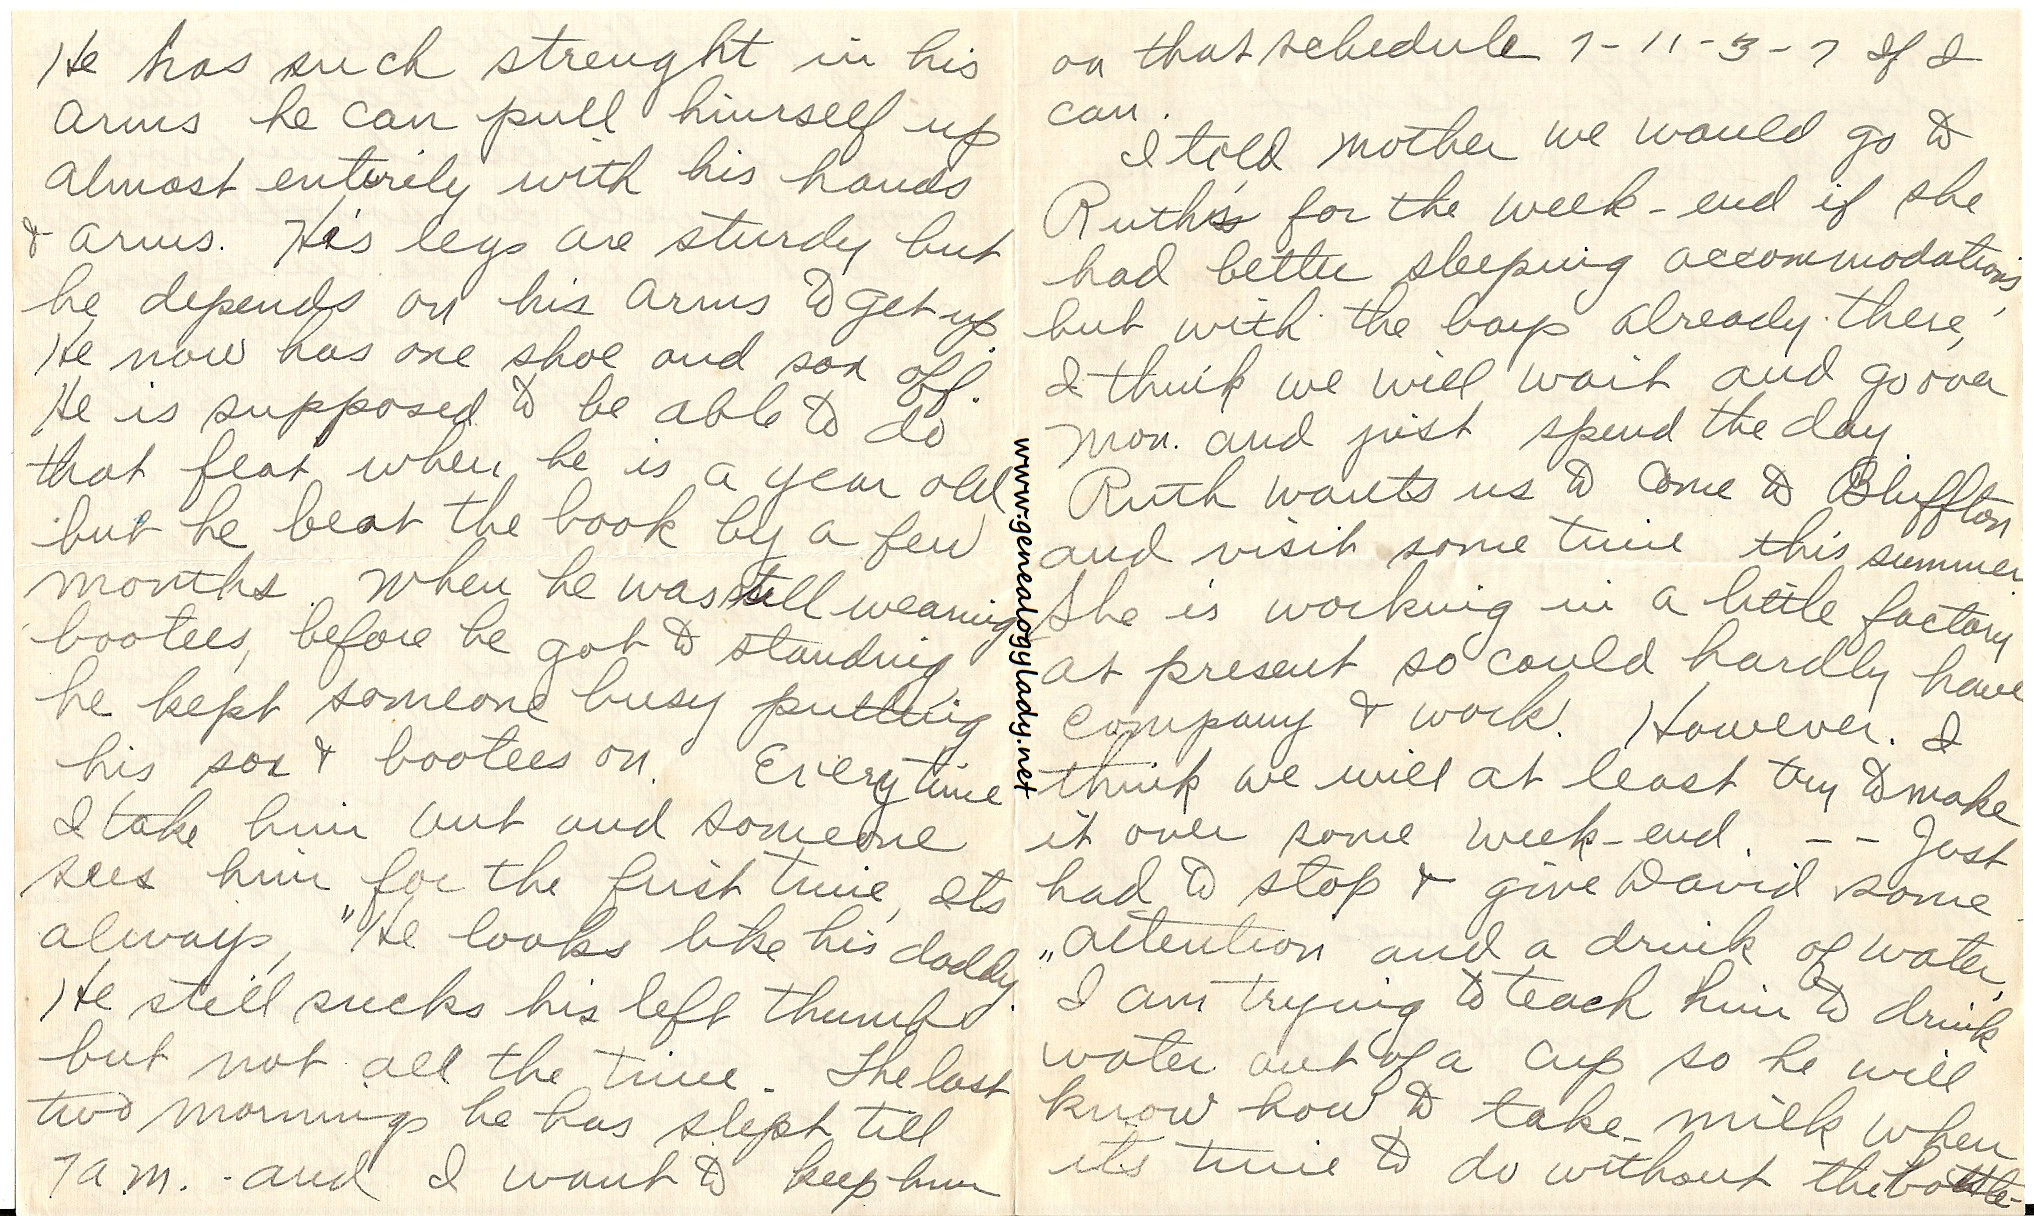 He has such strenght in his
arms he can pull himself up
almost entirily with his hands
& arms. His legs are sturdy but
he depends on his arms to get up.
He now has one shoe and sox off.
He is supposed to be able to do
that feat when he is a year old
but he beat the book by a few
months. When he was still wearing
bootees, before he got to standing
he kept someone busy putting
his sox & bootees on. Every time
I take him out and someone
sees him for the first time, its
always, "He looks like his daddy."
He still sucks his left thumb
but not all the time. The last
two mornings he has slept till
7 a.m. - and I want to keep him
on that schedule 7-11-3-7 if I
can.
I told mother we would go to
Ruth's for the week-end if she
had better sleeping accommodations,
but with the boys already there,
I think we will wait and go over
Mon. and just spend the day
Ruth wants us to come to Bluffton
and visit some time this summer
She is working in a little factory
at present so could hardly have
company & work. However. I
think we will at least try to make
it over some week-end. -- Just
had to stop & give David some
attention and a drink of water,
I am trying to teach him to drink
water out of a cup so he will
know how to take milk when
its time to do without the bottle-
www.genealogylady.net